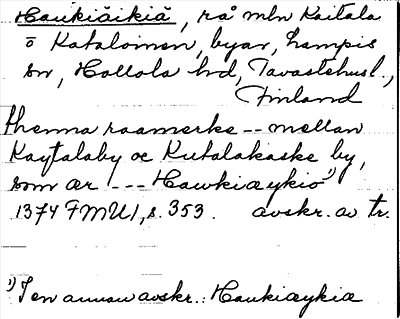 Haukiäikiä, rå mln Kaitala
o Kataloinen, byar, Lampis
sn, Hollola hd, Tavastehusl.,
Finland
thenna raamerke -- mellan
Kaytalaby oc Kutalakaske by,
som ær --- Hawkiæykiö¹⁾
1374 FMU I, s. 353. avskr. av tr.
¹⁾ I en annan avskr.: Haukiæykiæ